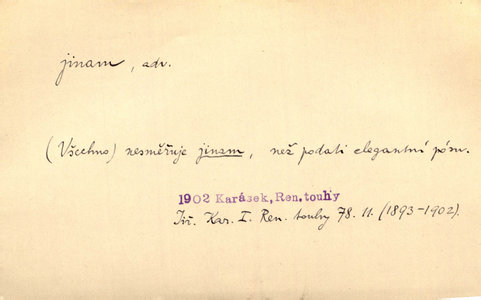 jinam, adv.
(Všechno) nesměřuje jinam, než podati elegantní pósu.
1902 Karásek, Ren. touhy
Jiř. Kar. I. Ren. touhy 78. 11. (1893-1902).